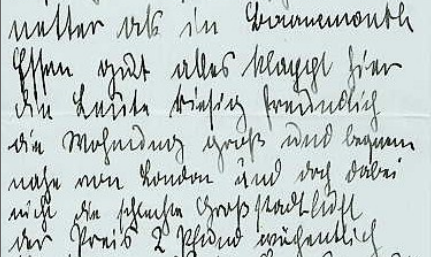 netter als in Bournemouth
Essen gut alles klappt hier
die Leute riesig freundlich
die Wohnung groß und bequem
nahe von London und doch dabei
nicht die schlechte Großstadtluft
der Preis 2 Pfund wöchentlich